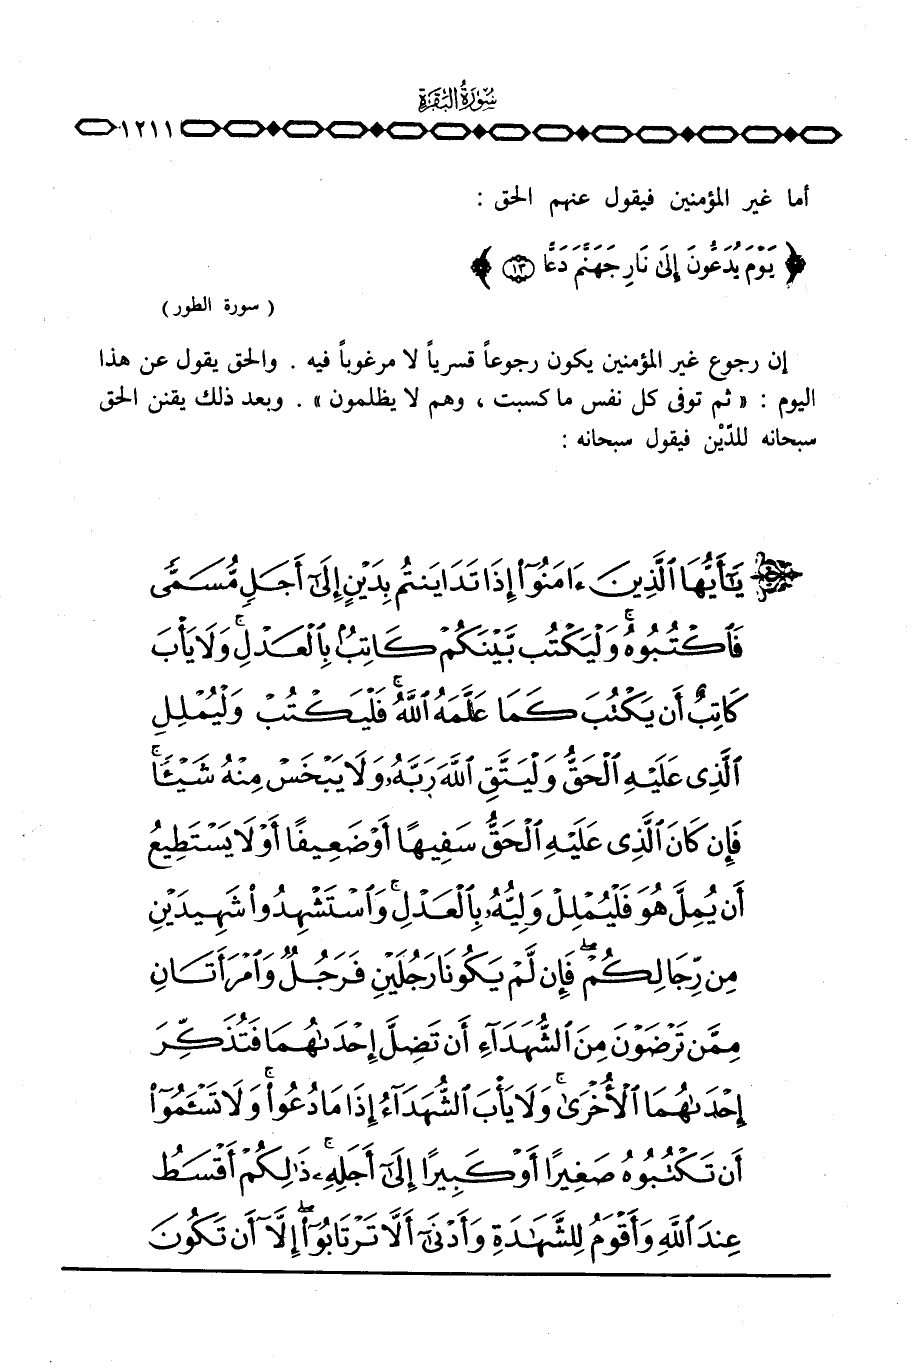 سُورَةُ البَقَرَةِ
١٢١١
أما غير المؤمنين فيقول عنهم الحق :
﴿ يَوْمَ يُدَعُّونَ إِلَىٰ نَارِ جَهَنَّمَ دَعًّا ١٣ ﴾
( سورة الطور )
إن رجوع غير المؤمنين يكون رجوعاً قسرياً لا مرغوباً فيه . والحق يقول عن هذا
اليوم : « ثم توفى كل نفس ما كسبت ، وهم لا يظلمون » . وبعد ذلك يقنن الحق
سبحانه للدَّيْن فيقول سبحانه :
يَٰٓأَيُّهَا ٱلَّذِينَ ءَامَنُوٓا۟ إِذَا تَدَايَنتُم بِدَيْنٍ إِلَىٰٓ أَجَلٍ مُّسَمًّى
فَٱكْتُبُوهُ ۚ وَلْيَكْتُب بَّيْنَكُمْ كَاتِبٌۢ بِٱلْعَدْلِ ۚ وَلَا يَأْبَ
كَاتِبٌ أَن يَكْتُبَ كَمَا عَلَّمَهُ ٱللَّهُ ۚ فَلْيَكْتُبْ وَلْيُمْلِلِ
ٱلَّذِى عَلَيْهِ ٱلْحَقُّ وَلْيَتَّقِ ٱللَّهَ رَبَّهُۥ وَلَا يَبْخَسْ مِنْهُ شَيْـًٔا ۚ
فَإِن كَانَ ٱلَّذِى عَلَيْهِ ٱلْحَقُّ سَفِيهًا أَوْ ضَعِيفًا أَوْ لَا يَسْتَطِيعُ
أَن يُمِلَّ هُوَ فَلْيُمْلِلْ وَلِيُّهُۥ بِٱلْعَدْلِ ۚ وَٱسْتَشْهِدُوا۟ شَهِيدَيْنِ
مِن رِّجَالِكُمْ ۖ فَإِن لَّمْ يَكُونَا رَجُلَيْنِ فَرَجُلٌ وَٱمْرَأَتَانِ
مِمَّن تَرْضَوْنَ مِنَ ٱلشُّهَدَآءِ أَن تَضِلَّ إِحْدَىٰهُمَا فَتُذَكِّرَ
إِحْدَىٰهُمَا ٱلْأُخْرَىٰ ۚ وَلَا يَأْبَ ٱلشُّهَدَآءُ إِذَا مَا دُعُوا۟ ۚ وَلَا تَسْـَٔمُوٓا۟
أَن تَكْتُبُوهُ صَغِيرًا أَوْ كَبِيرًا إِلَىٰٓ أَجَلِهِۦ ۚ ذَٰلِكُمْ أَقْسَطُ
عِندَ ٱللَّهِ وَأَقْوَمُ لِلشَّهَٰدَةِ وَأَدْنَىٰٓ أَلَّا تَرْتَابُوٓا۟ ۖ إِلَّآ أَن تَكُونَ